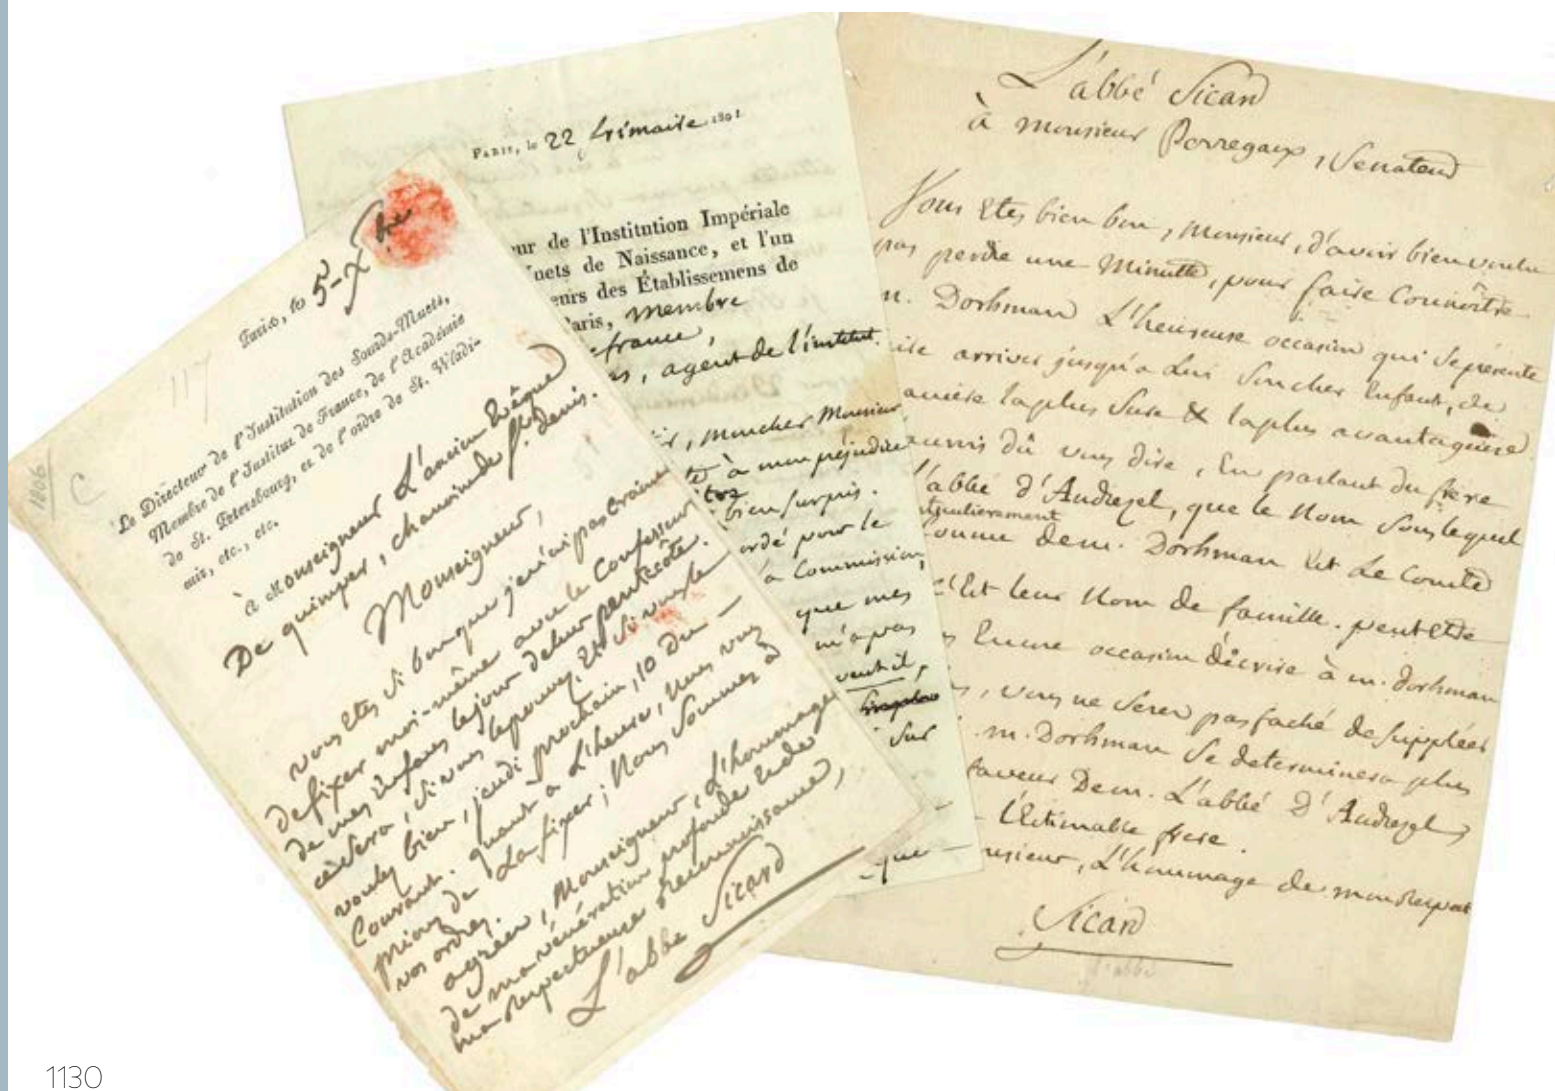 Paris, le 5 Xbre
117
1806
C
Le Directeur de l'Institution des Sourds-Muets,
Membre de l'Institut de France, de l'Académie
de St. Petersbourg, et de l'ordre de St. Wladi-
mir, etc., etc.
à Monseigneur L'ancien Evêque
De quimper, chanoine de St. denis.
Monseigneur,
vous etes si bon que je n'ai pas craint
de fixer moi-même avec le Confesseur
de mes enfans le jour de leur pentecôte.
ce sera, si vous le pouvez, et si vous le
voulez bien, jeudi prochain, 10 du
Courant. quant à L'heure, nous vous
prions de La fixer; Nous Sommes à
vos ordres.
agréez, Monseigneur, L'hommage
de ma vénération profonde et de
ma respectueuse reconnaissance,
L'abbé Sicard
Paris, le 22 frimaire 1801
eur de l'Institution Impériale
Muets de Naissance, et l'un
eurs des Établissemens de
Paris, membre
france,
, agent de l'institut.
, mon cher Monsieur
té à mon préjudice
bien surpris.
ordé pour le
a Commission,
que mes
m'a pas
veut il,
sur
L'abbé Sicard
à monsieur Perregaux, Senateur
Vous etes bien bon, monsieur, d'avoir bien voulu
pas perdre une Minutte, pour faire Connoître
m. Dorhman L'heureuse occasion qui se présente
arriver jusqu'a Lui Son cher Enfant, de
manière la plus Sure & la plus avantageuse.
aurois dû vous dire, En parlant du frère
l'abbé d'Andrezel, que le Nom Sous lequel
particulierement
Connu de m. Dorhman Est Le Comte
C'Est leur Nom de famille. peut etre
Encore occasion d'écrire à m. dorhman
, vous ne serez pas faché de suppléer
. m. Dorhman Se determinera plus
faveur De m. L'abbé D'Andrezel,
L'Estimable frere.
monsieur, L'hommage de mon respect
Sicard
l'abbé
1130